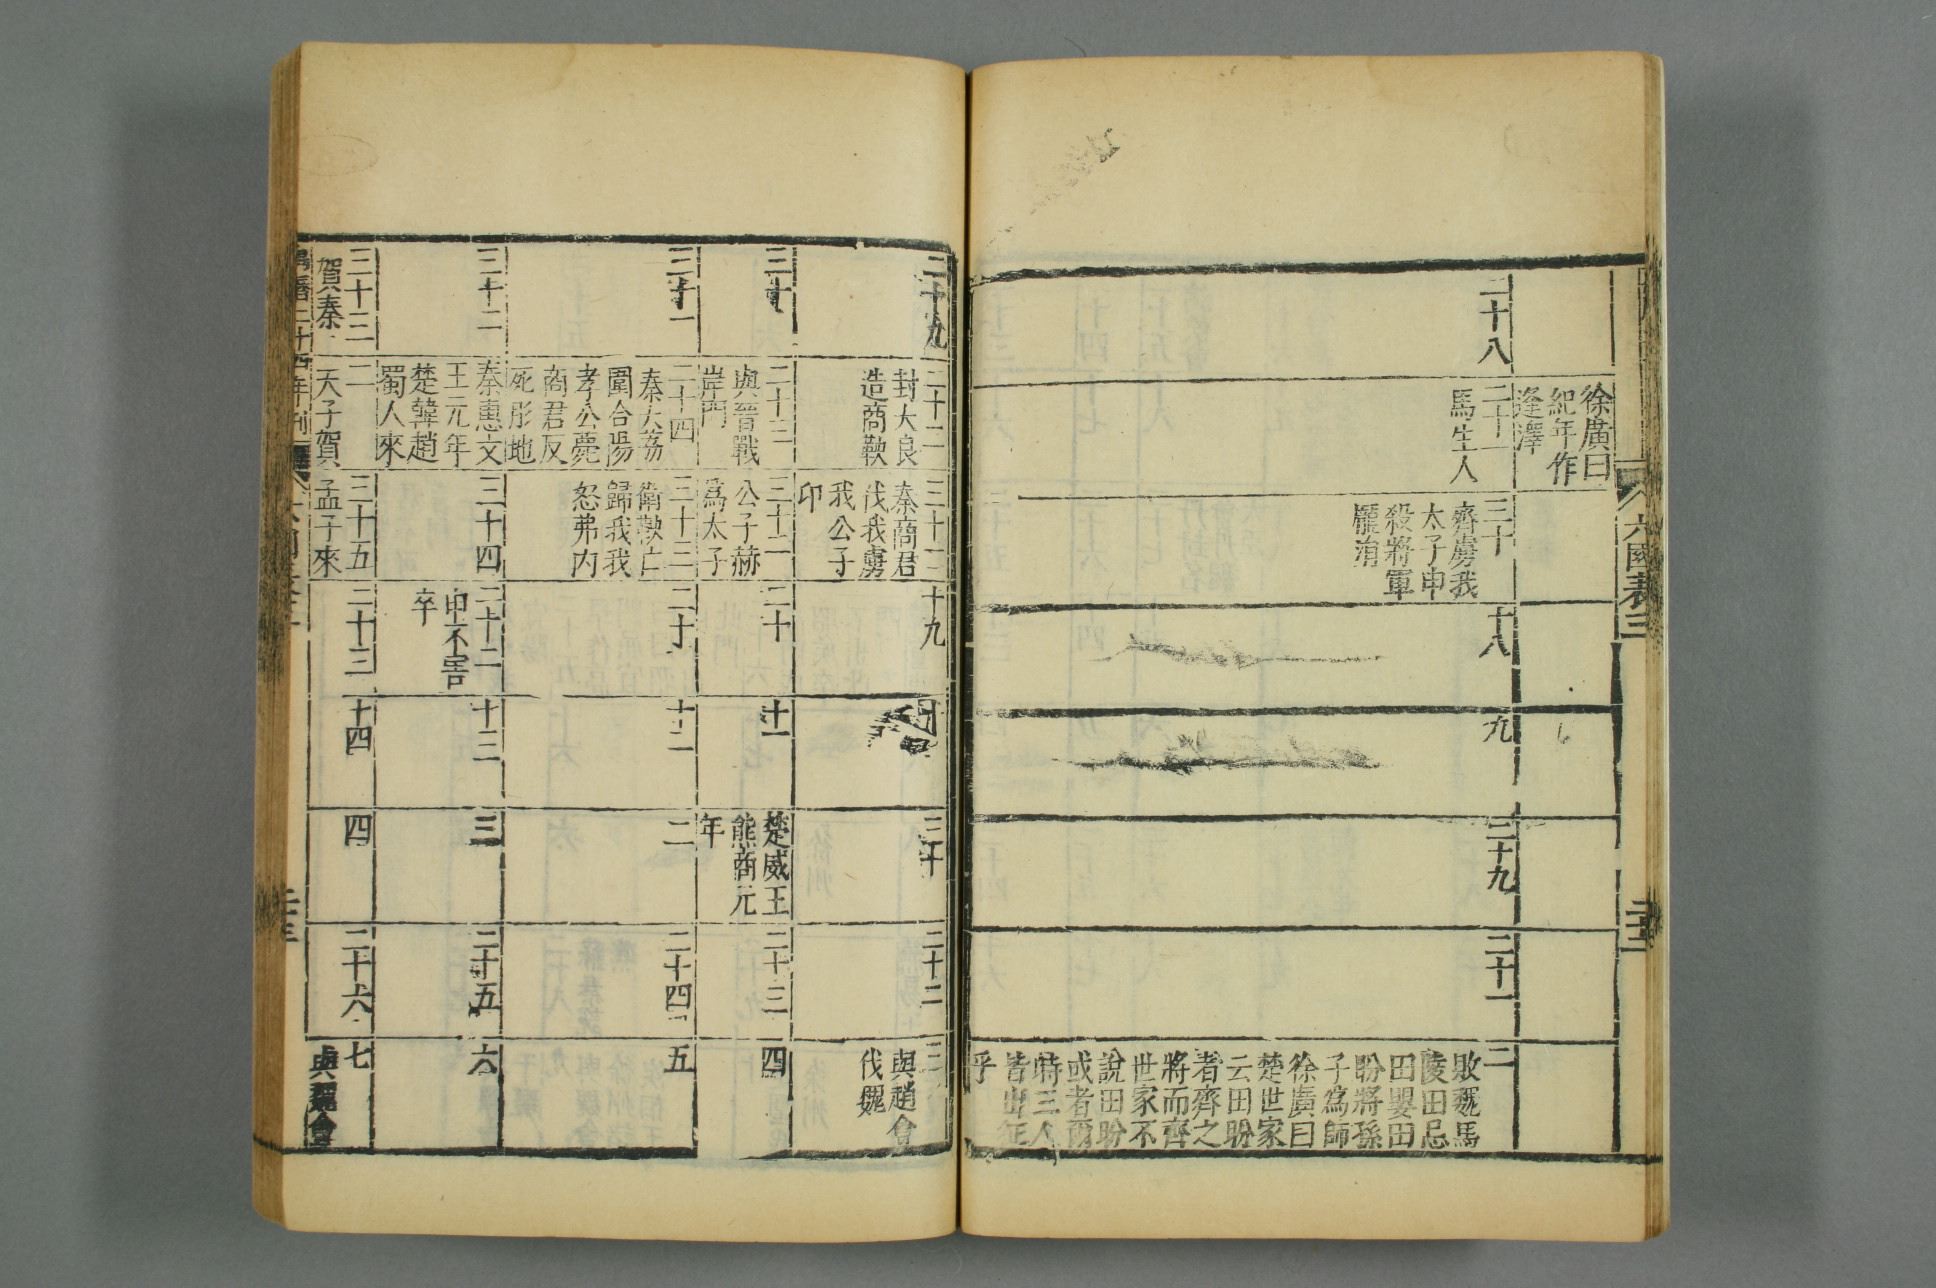 六國表三
徐廣曰
紀年作
逢澤
二十八
二十一
馬生人
三十
齊虜我
太子申
殺將軍
龐涓
十八
九
二十九
二十一
二
敗魏馬
陵田忌
田嬰田
盼將孫
子爲師
徐廣曰
楚世家
云田盼
者齊之
將而齊
世家不
說田盼
或者爾
時三人
皆出征
乎
二十九
二十二
封大良
造商鞅
三十一
秦商君
伐我虜
我公子
卬
十九
三十
二十二
三
與趙會
伐魏
三十
二十三
與晉戰
岸門
三十二
公子赫
爲太子
二十
十一
楚威王
熊商元
年
二十三
四
三十一
二十四
秦大荔
圍合陽
孝公薨
商君反
死彤地
三十三
衛鞅亡
歸我我
怒弗内
二十一
十二
二
二十四
五
三十二
秦惠文
王元年
楚韓趙
蜀人來
三十四
二十二
申不害
卒
十三
三
二十五
六
三十三
賀秦
二
天子賀
三十五
孟子來
二十三
十四
四
二十六
七
與魏會